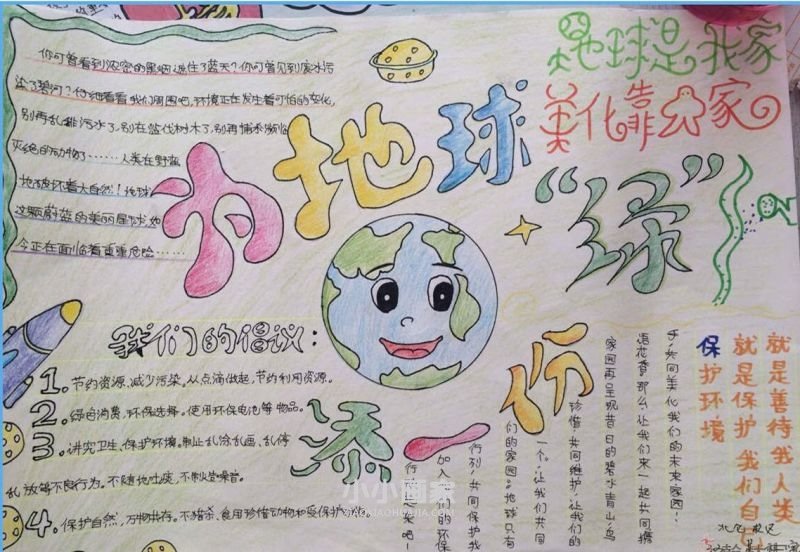 你可曾看到浓密的黑烟遮住了蓝天?你可曾见到废水污
染了碧河?仔细看看我们周围吧,环境正在发生着可怕的变化,
别再乱排污水了,别在滥伐树木了,别再捕杀濒临
灭绝的动物了……人类在野蛮
地破坏着大自然!地球
这颗蔚蓝的美丽星球,她
今正在面临着重重危险……
地球是我家
美化靠大家
为地球
“绿”
添一份
我们的倡议:
1.节约资源、减少污染。从点滴做起,节约利用资源。
2.绿色消费,环保选择。使用环保电池等物品。
3.讲究卫生、保护环境,制止乱涂乱画、乱停
乱放等不良行为。不随地吐痰,不制造噪音。
4.保护自然,万物共存。不猎杀、食用珍惜动物和受保护动物。
就是善待我人类
就是保护我们自
保护环境
手,共同美化我们的未来家园!
语花香,那么,让我们来一起共同携
家园再呈现昔日的碧水青山,鸟
珍惜,共同维护,让我们的
一个。让我们共同
们的家园。地球只有
行列,共同保护我
加入我们的环保
行
来吧!
小小画家
XIAOXIAOHUAJIA.COM